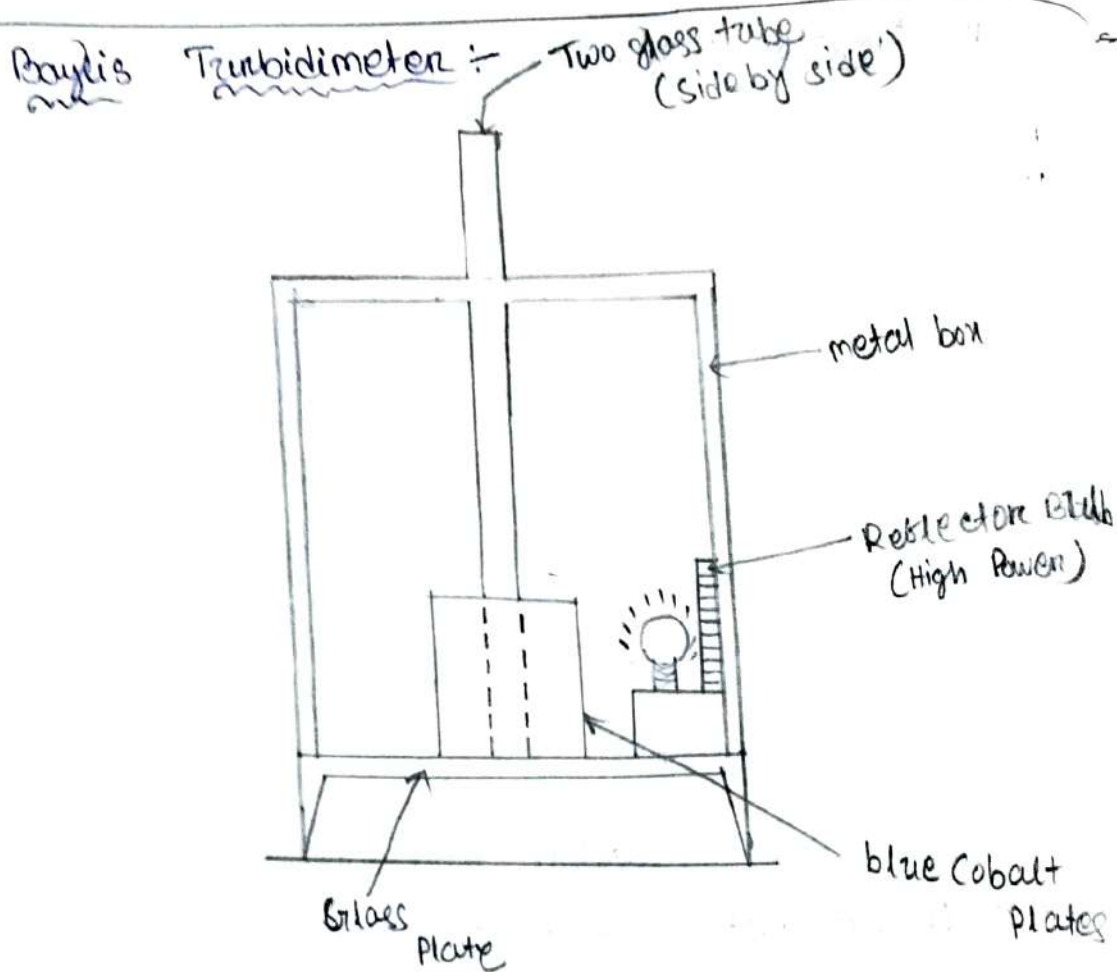 Baylis Turbidimeter :-
Two glass tube
(side by side')
metal box
Reflector Bulb
(High Power)
blue Cobalt
Plates
Glass
Plate